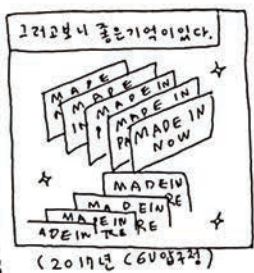 그러고보니 좋은기억이있다.
MADE
MADE IN
MADE IN
MADE IN
MADE IN
NOW
MADEIN
RE
MADEIN
RE
MADEIN
RE
ADEIN
(2017년 CGV압구정)